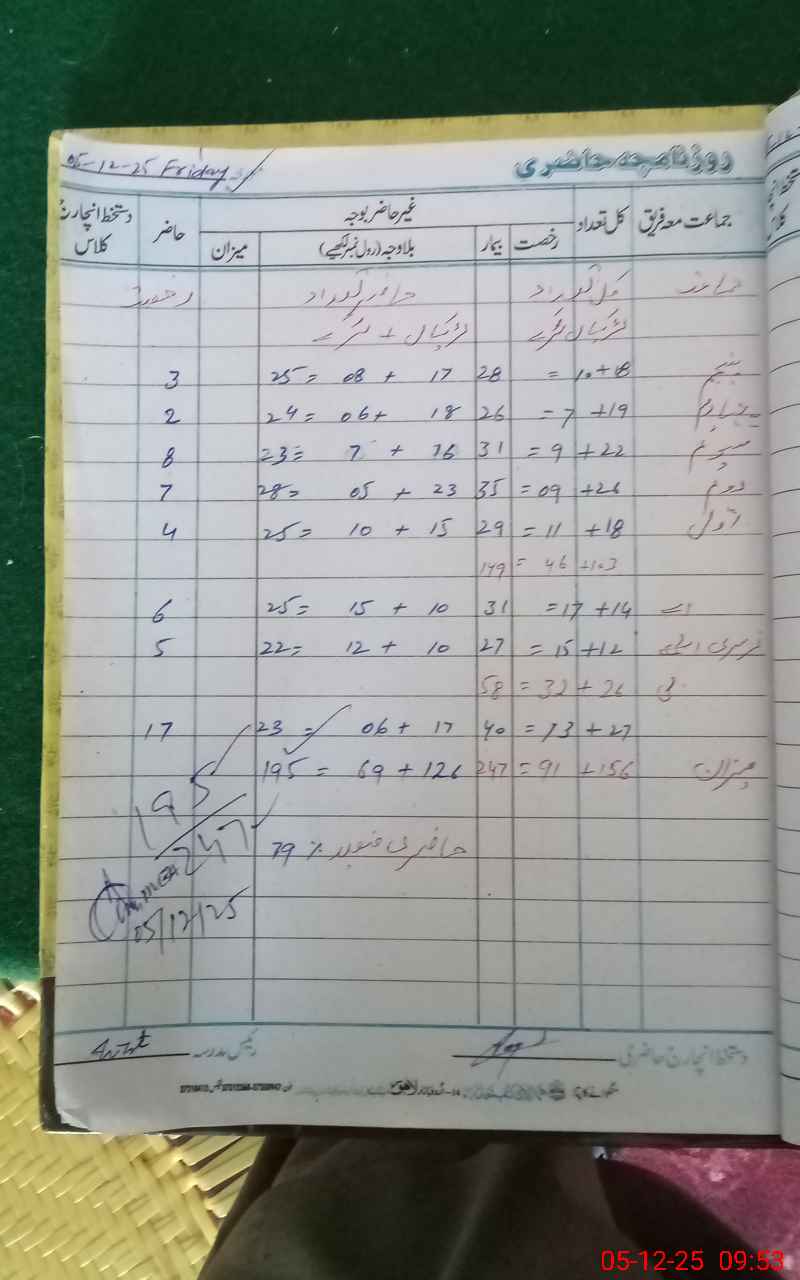 05-12-25 Friday
روزنامچہ حاضری
جماعت معہ فریق کل تعداد غیر حاضر بوجہ حاضر دستخط انچارج کلاس
رخصت بیمار بلاوجہ (رول نمبر لکھیے) میزان
جماعت کل تعداد حاضر تعداد رخصت
لڑکیاں لڑکے لڑکیاں + لڑکے
پنجم 18+10 = 28 17 + 08 = 25 3
چہارم 19+ 7 = 26 18 +06 = 24 2
سوم 22+ 9 = 31 16 + 7 = 23 8
دوم 26+ 09 = 35 23 + 05 = 28 7
اول 18+ 11 = 29 15 + 10 = 25 4
103+ 46 = 149
اے 14+ 17= 31 10 + 15 = 25 6
نرسری 12+ 15 = 27 10 + 12 = 22 5
26 + 32 = 58
27 + 13 = 40 17 + 06 = 23 17
میزان 156+ 91 = 247 126 + 69 = 195
195/247
حاضری فیصد ٪ 79
05/12/25
دستخط انچارج حاضری رئیس مدرسہ
05-12-25 09:53